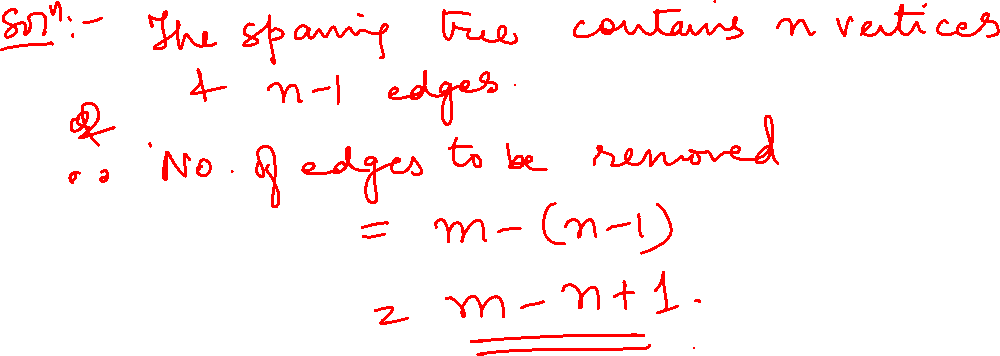 Solⁿ:- The spaning tree contains n vertices
& n-1 edges.
∴ No. of edges to be removed
= m-(n-1)
= m-n+1.